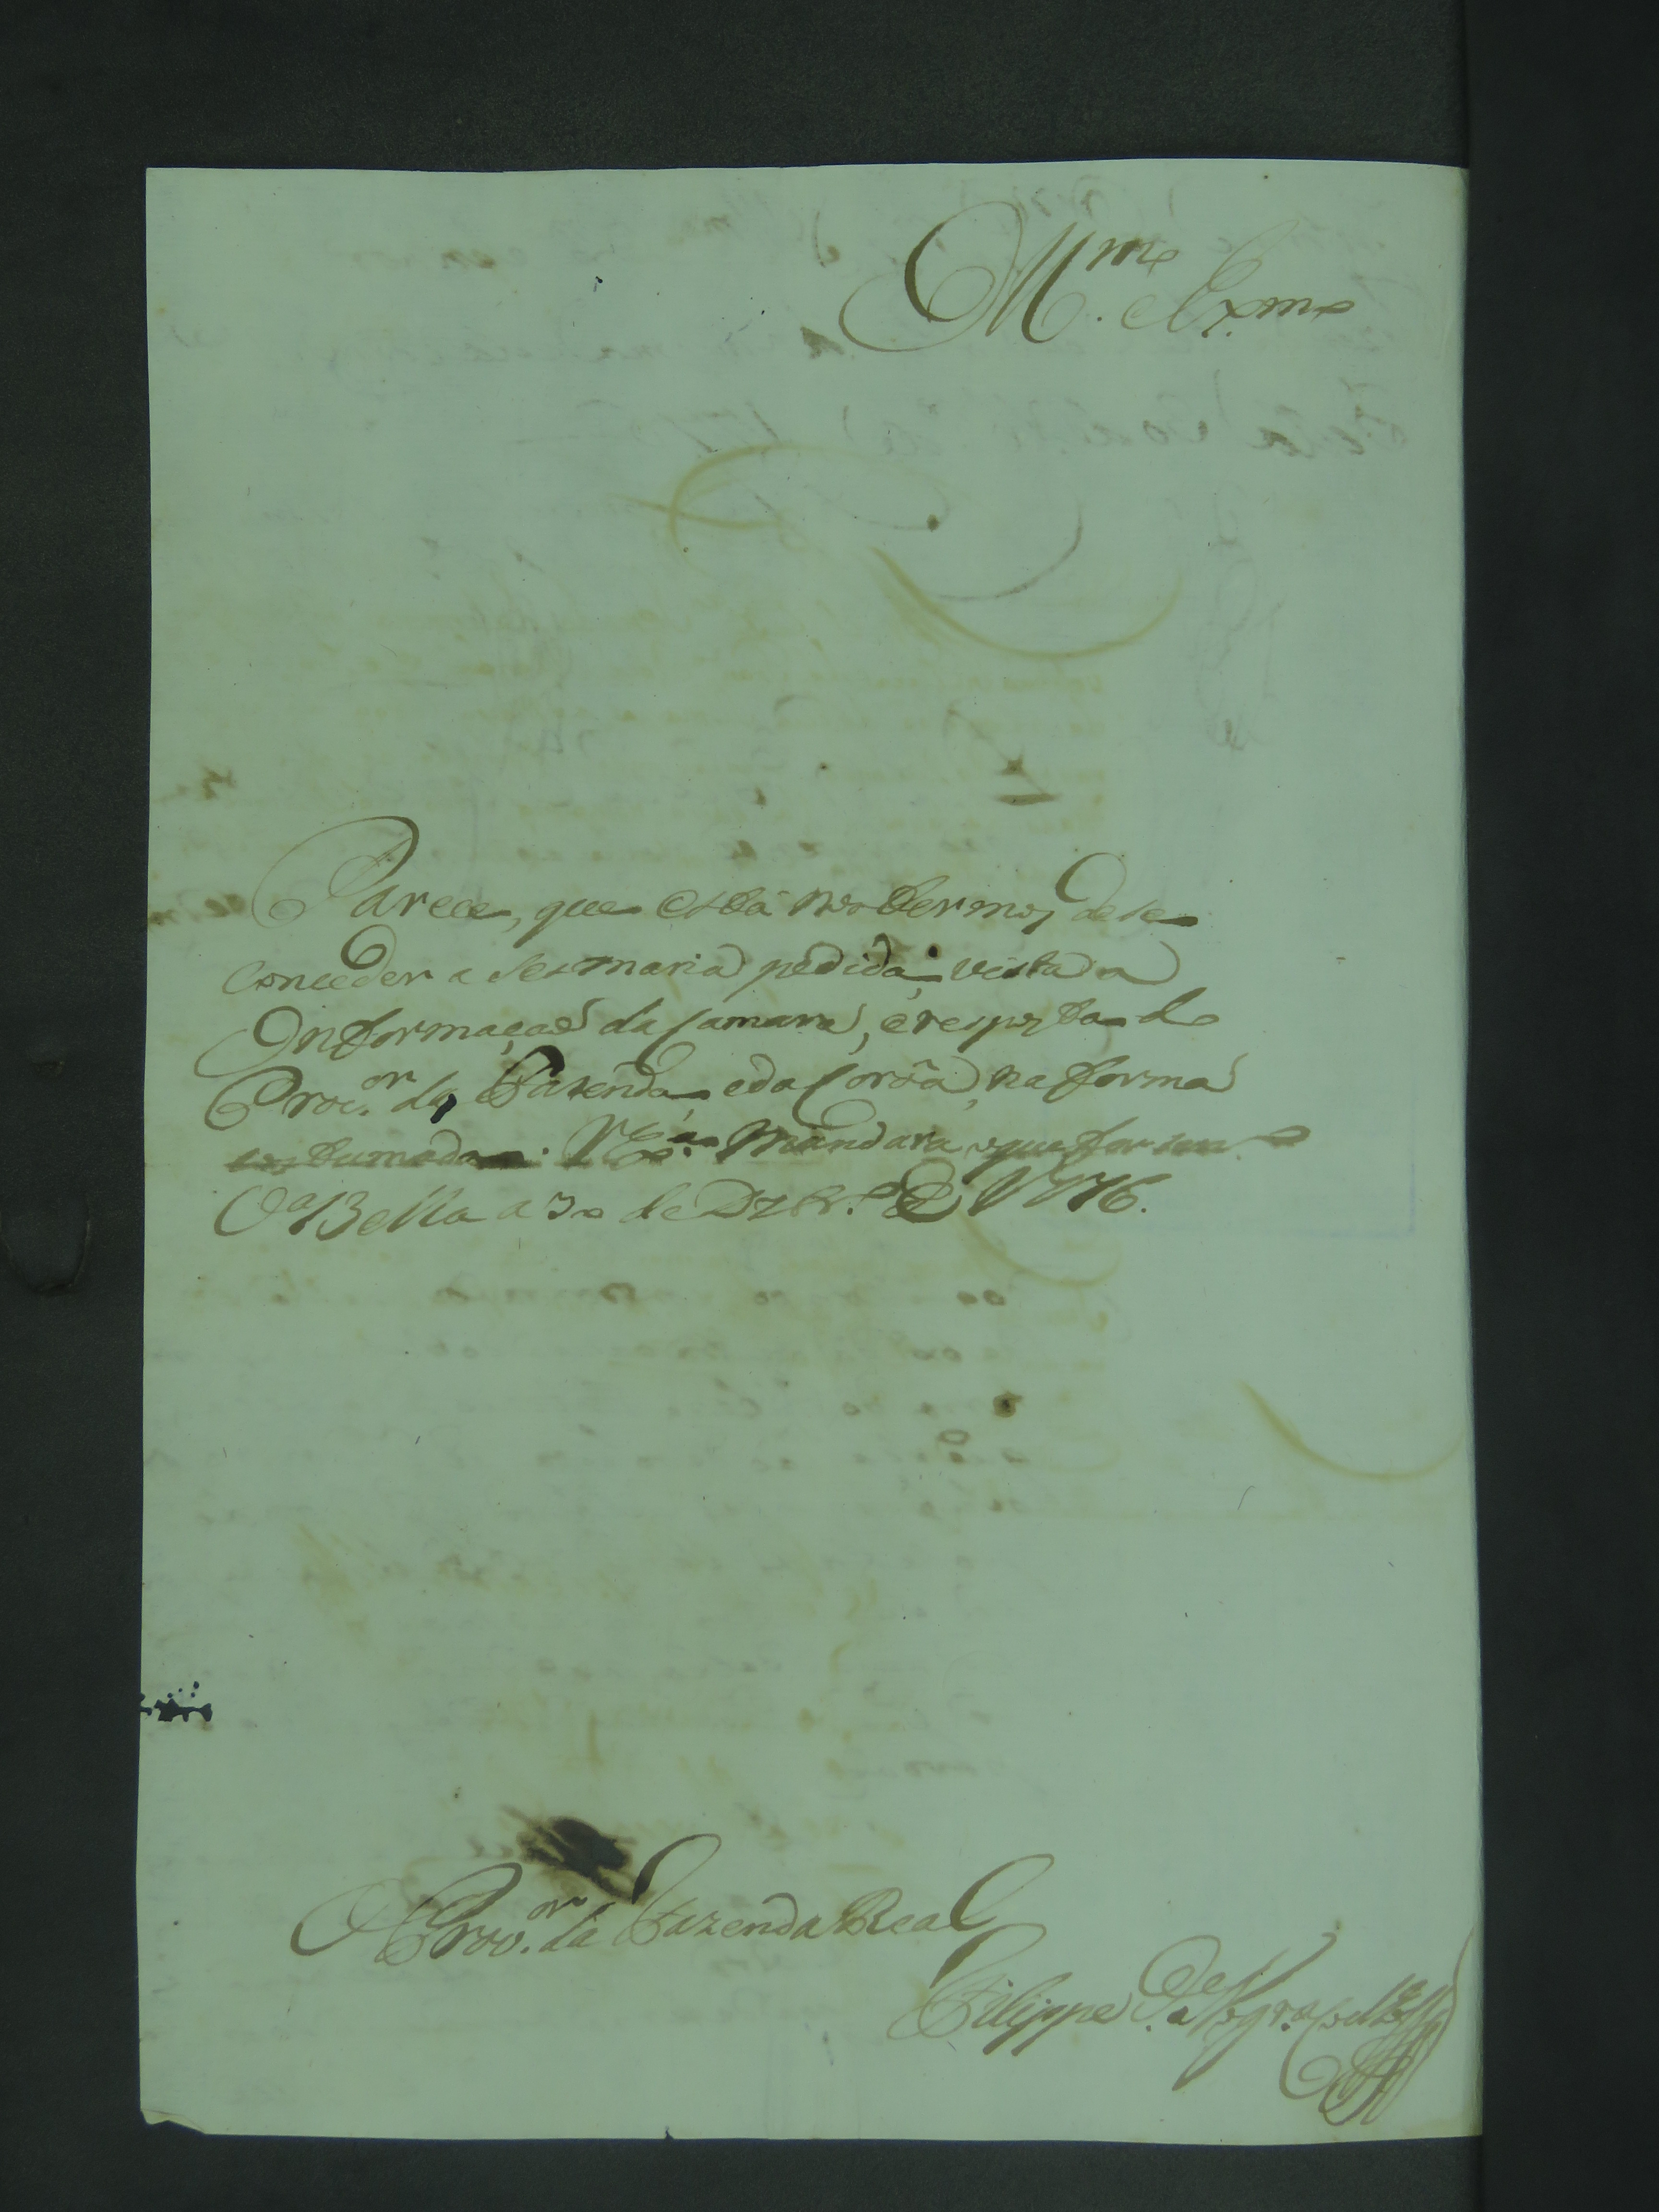 Ill.mo Exmo
Parece, que está nos termos de se
conceder a Sesmaria pedida, vista a
Informaçaõ da Camara, e resposta do
Proc.or da Fazenda, e da Coroa, na forma
costumada. V Ex.a Mandara o que for
V.a Bella a 30 de Dzbr.o de 1776.
O Prov.or da Fazenda Real
Filippe